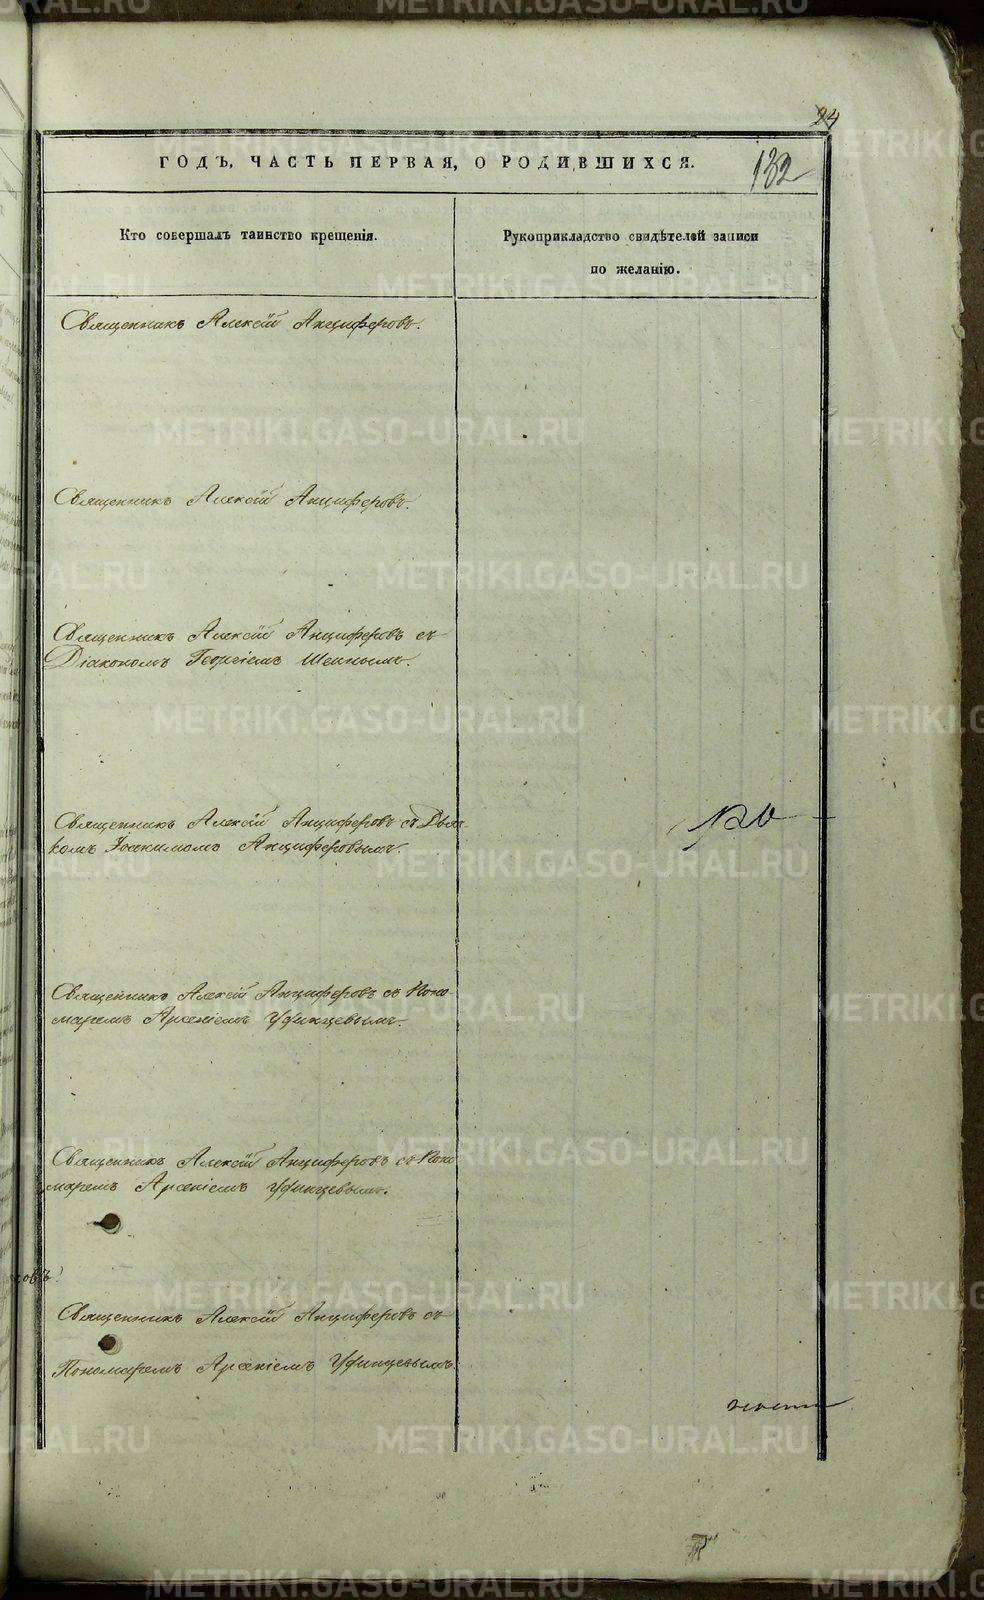 24
ГОДЪ, ЧАСТЬ ПЕРВАЯ, О РОДИВШИХСЯ.
132
Кто совершалъ таинство крещенія.
Рукоприкладство свидѣтелей записи
по желанію.
Священникъ Алексій Анциферовъ.
Священникъ Алексій Анциферовъ.
Священникъ Алексій Анциферовъ съ
Діакономъ Георгіемъ
Священникъ Алексій Анциферовъ съ Дьяч-
комъ Іоакимомъ Анциферовымъ.
Священникъ Алексій Анциферовъ съ Поно-
маремъ Арсеніемъ Уфинцевымъ.
Священникъ Алексій Анциферовъ съ Поно-
маремъ Арсеніемъ Уфинцевымъ.
овъ
Священникъ Алексій Анциферовъ съ
Пономаремъ Арсеніемъ Уфинцевымъ.
METRIKI.GASO-URAL.RU